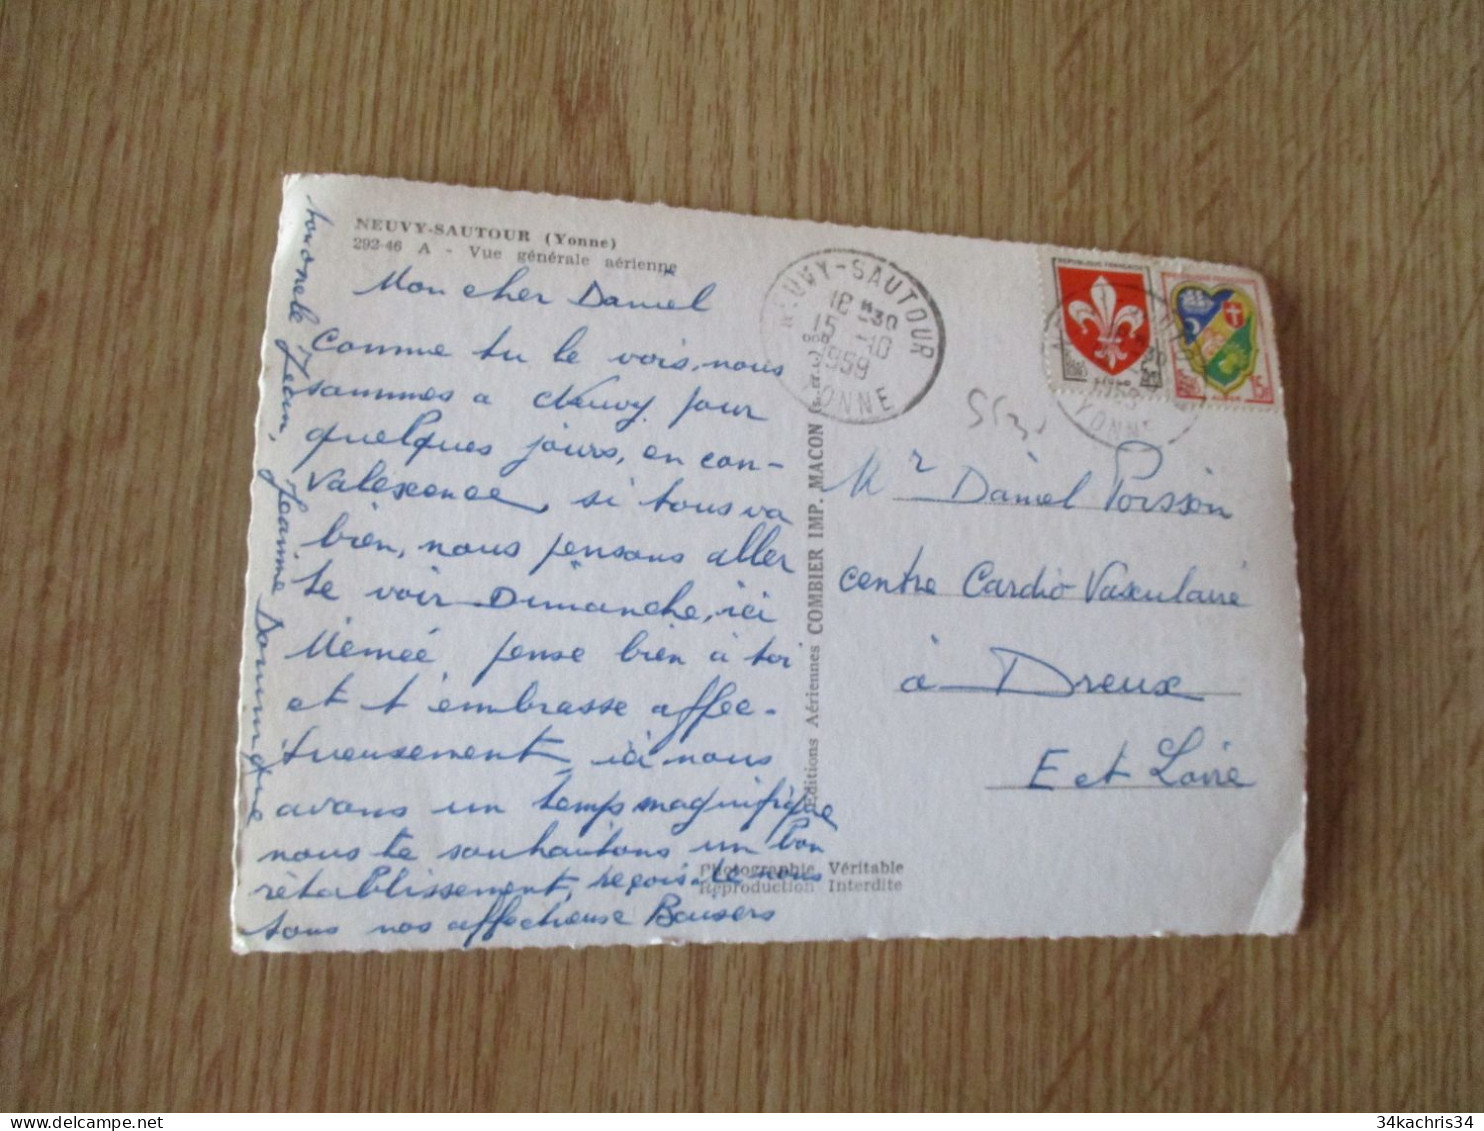 NEUVY-SAUTOUR (Yonne)
292-46 A - Vue générale aérienne
Mon cher Daniel
Comme tu le vois, nous
sommes a Neuvy pour
quelques jours, en con-
valexence, si tous va
bien, nous pensons aller
te voir Dimanche, ici
Mémée pense bien à toi
et t'embrasse affec-
tueusement, ici nous
avons un temps magnifique
nous te souhaitons un bon
rétablissement, reçois de nous
tous nos affectieuse Baisers
Jean, Jeannine Dominique
Editions Aériennes COMBIER IMP. MACON
Photographie Véritable
Reproduction Interdite
NEUVY-SAUTOUR
18 H30
15 -10
1959
YONNE
REPUBLIQUE FRANÇAISE
YONNE
Mr Daniel Poisson
centre Cardio Vasculaire
à Dreux
E et Loire
34kachris34